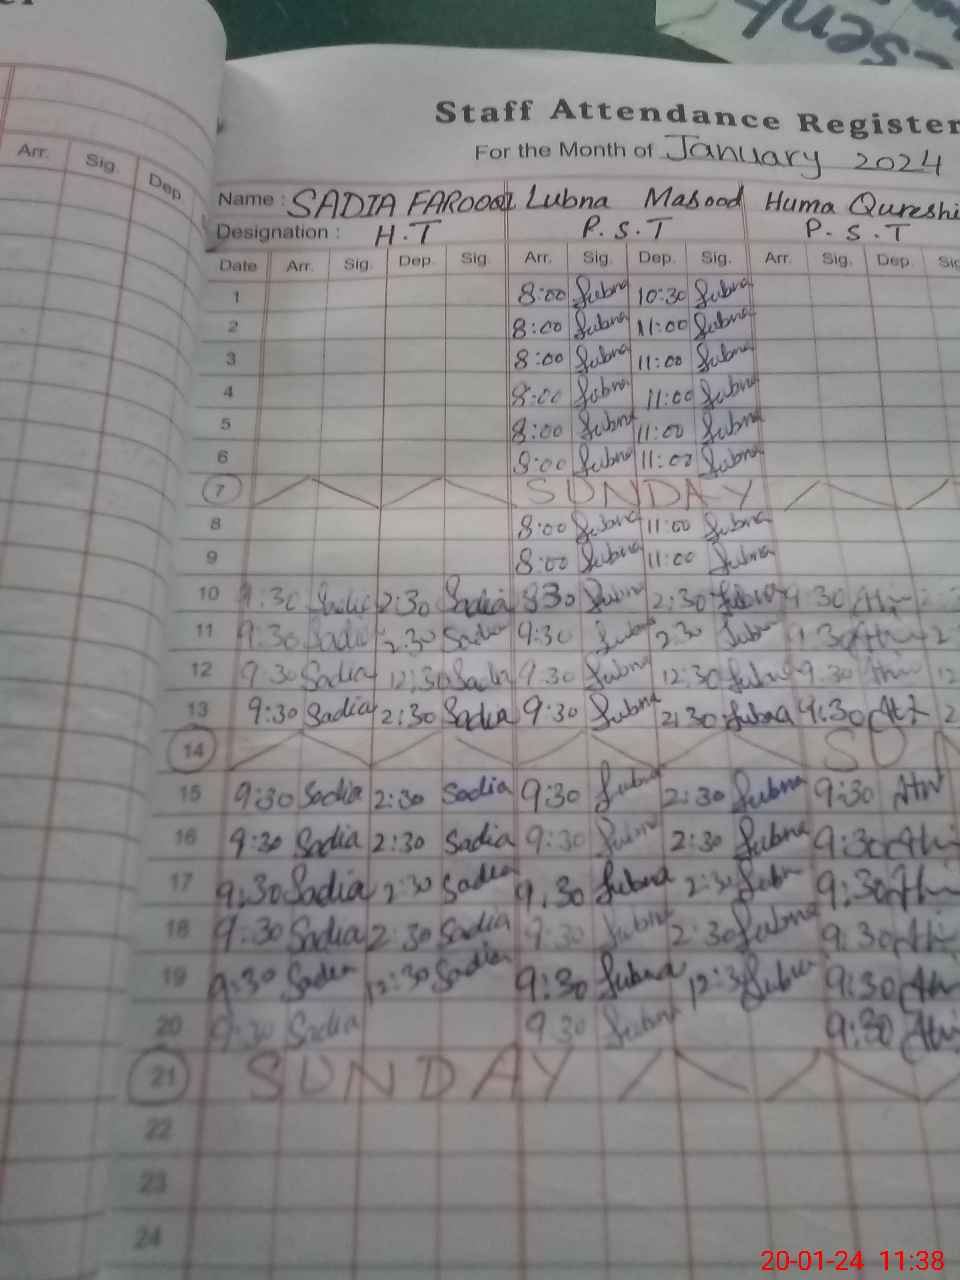 Staff Attendance Register
For the Month of January 2024
Arr. Sig. Dep.
Name : SADIA FAROOQI Lubna Masood Huma Qureshi
Designation : H.T P.S.T P.S.T
Date Arr. Sig. Dep. Sig. Arr. Sig. Dep. Sig. Arr. Sig. Dep.
1 8:00 Lubna 10:30 Lubna
2 8:00 Lubna 11:00 Lubna
3 8:00 Lubna 11:00 Lubna
4 8:00 Lubna 11:00 Lubna
5 8:00 Lubna 11:00 Lubna
6 8:00 Lubna 11:00 Lubna
7 SUNDAY
8 8:00 Lubna 11:00 Lubna
9 8:00 Lubna 11:00 Lubna
10 9:30 Sadia 2:30 Sadia 830 Lubna 2:30 Lubna 9:30
11 9:30 Sadia 2:30 Sadia 9:30 Lubna 2:30 Lubna 9:30
12 9:30 Sadia 12:30 Sadia 9:30 Lubna 12:30 Lubna 9:30
13 9:30 Sadia 2:30 Sadia 9:30 Lubna 2:30 Lubna 9:30
14 SUN
15 9:30 Sadia 2:30 Sadia 9:30 Lubna 2:30 Lubna 9:30
16 9:30 Sadia 2:30 Sadia 9:30 Lubna 2:30 Lubna 9:30
17 9:30 Sadia 2:30 Sadia 9:30 Lubna 2:30 Lubna 9:30
18 9:30 Sadia 2:30 Sadia 9:30 Lubna 2:30 Lubna 9:30
19 9:30 Sadia 12:30 Sadia 9:30 Lubna 12:30 Lubna 9:30
20 9:30 Sadia 9:30 Lubna 9:30
21 SUNDAY
22
23
24
20-01-24 11:38